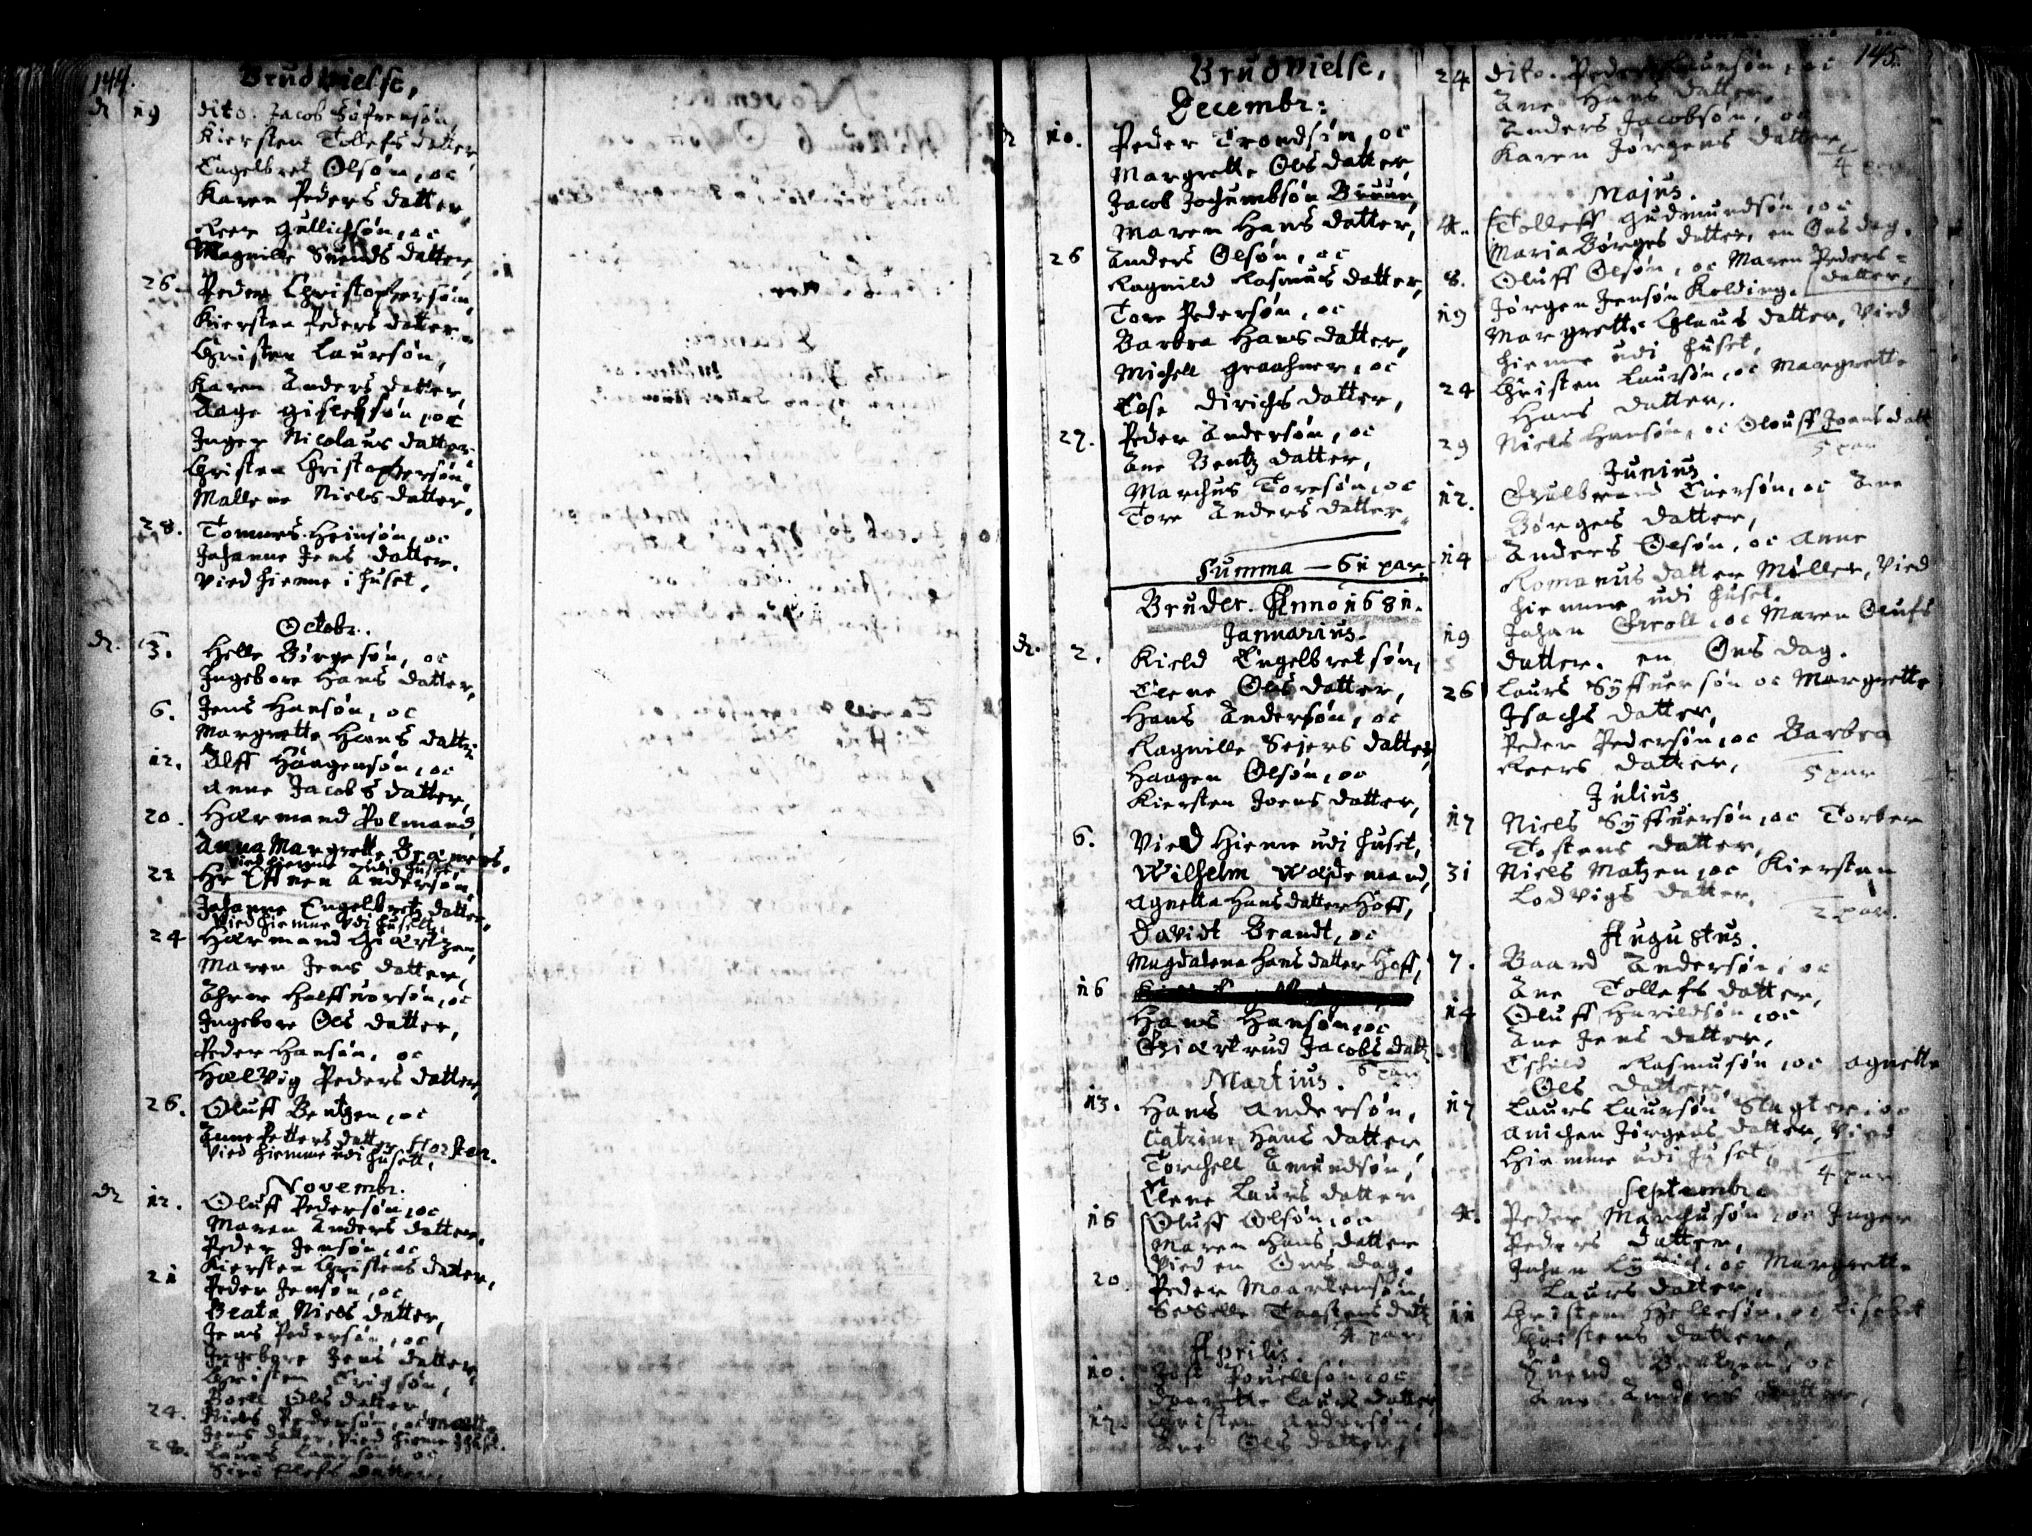 144.
Brudvielse,
d 19 dito. Jacob Søfrensøn,
Kiersten Tollefs datter,
Engelbret Olsøn, oc
Karen Peders datter,
Reer Gullichsøn, oc
Magnille Svends datter,
26. Peder Christophersøn,
Kiersten Peders datter,
Christen Laursøn,
Karen Anders datter,
Aage Gislefsøn, oc
Inger Nicolaus datter.
Christen Christophersøn,
Mallene Niels datter,
28. Tommes Heinsøn, oc
Johanne Jens datter.
Vied hiemme i huset.
Octobr.
d. 3. Helle Børgesøn, oc
Ingebore Hans datter,
6. Jens Hansøn, oc
Margrette Hans datter
12. Alff Haagensøn, oc
Anne Jacobs datter,
20. Harmand Polmand,
Anna Margrette Bramers.
Vied hiemme udi huset.
22 Hr Effuen Andersøn,
Johanne Engelbretz datter,
Vied hiemme udi husett.
24 Harmand Giærtzen,
Maren Jens datter,
Ahroe Halffuorsøn, oc
Ingebore Ols datter,
Peder Hansøn, oc
Hælvig Peders datter,
26. Oluff Bentzen, oc
Anne Petters datter Horsten.
Vied hiemme udi husett.
Novembr.
d 12. Oluff Pedersøn, oc
Maren Anders datter.
Peder Jensøn, oc
Kiersten Christens datter,
21 Peder Jensøn, oc
Beata Niels datter,
Jens Pedersøn, oc
Ingebore Jens datter,
Christen Erichsøn,
Boell Ols datter
24. Niels Pedersøn, oc Marth
Jens datter, Vied hieme
28. Laurs Laursøn, oc
Siri Olefs datter,
Brudvielse,
Decembr:
d 10. Peder Trondsøn, oc
Margrette Ols datter,
Jacob Jochumbsøn Bruun,
Maren Hans datter,
26 Anders Olsøn, oc
Ragnild Rasmus datter,
Tore Pedersøn, oc
Barbra Hans datter,
Michell Graahner, oc
Cose Dirichs datter,
27. Peder Andersøn, oc
Ane Bentz datter,
Marchus Toresøn, oc
Tore Anders datter.
Summa — 61 par.
Bruder. Anno 1681.
Januarius.
d. 2. Kield Engelbretsøn,
Elene Ols datter,
Hans Andersøn, oc
Ragnille Sejers datter
Haagen Olsøn, oc
Kiersten Joens datter,
6. Vied Hieme udi huset,
Wilhelm Woldemand,
Agnetta Hans datter Hoff,
Davidt Brandt, oc
Magdalena Hans datter Hoff,
16
Hans Hansøn, oc
Giærtrud Jacobs datt
6 par
Martius.
13. Hans Andersøn,
Catrine Hans datter
Torchell Amundsøn,
Elene Laurs datter
16 Oluff Olsøn, oc
Maren Hans datter
Vied en Ons dag.
20 Peder Maartensøn,
Seselle Taastens datt
4 par
Aprilis.
10. Jost Pouellsøn, oc
Dorrethe Laurs datter,
17. Christen Andersøn,
Ane Ols datter,
145.
24 dito. Peder Laursøn, oc
Ane Hans datter,
Anders Jacobsøn, oc
Karen Jørgens datter,
4 par
Majus.
4. Tolleff Gudmundsøn, oc
Maria Børges datter, en Ons dag.
8. Oluff Olsøn, oc Maren Peders-
datter,
19 Jørgen Jensøn Kolding.
Margrette Claus datter, Vied
hieme udi huset,
24 Christen Laursøn, oc Margrette
Hans datter,
29 Niels Hansøn, oc Olouff Joens datt
5 par
Junius.
12. Gulbrand Euersøn, oc Ane
Børges datter,
14 Anders Olsøn, oc Anne
Romanus datter Møller, Vied
hiemme udi huset.
19 Johan Groll, oc Maren Olufs
datter. en Ons dag.
26 Laurs Syffuersøn oc Margrette
Isachs datter,
Peder Pedersøn, oc Barbra
Reers datter,
5 par
Julius
17 Niels Syffuersøn, oc Torber
Tostens datter,
31 Niels Matzen, oc Kiersten
Lodvigs datter,
2 par.
Augustus.
7. Baard Andersøn, oc
Ane Tollefs datter,
14 Oluff Harildsøn, oc
Ane Jens datter,
Eschild Rasmusøn, oc Agnette
Ols datter,
17 Laurs Laursøn Slagter, oc
Anichen Jørgens datter, Vied
Hiemme udi huset,
4 par.
Septembr.
4. Peder Marchusøn, oc Inger
Peders datter,
Johan oc Margrette
Laurs datter,
11 Christen Hellesøn, oc Lisebet
Christens datter,
Suend Bentzen, oc
Ane Anders datter,